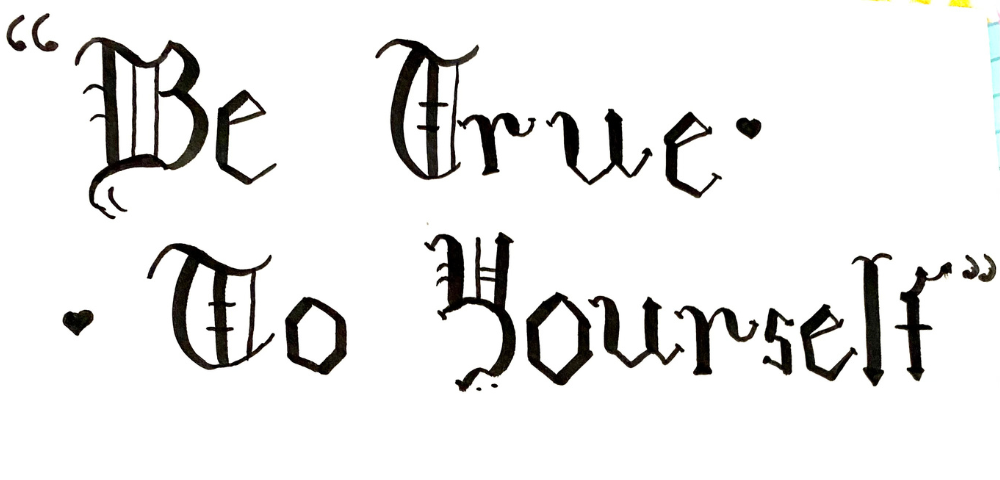 “Be True♥
♥To Yourself”